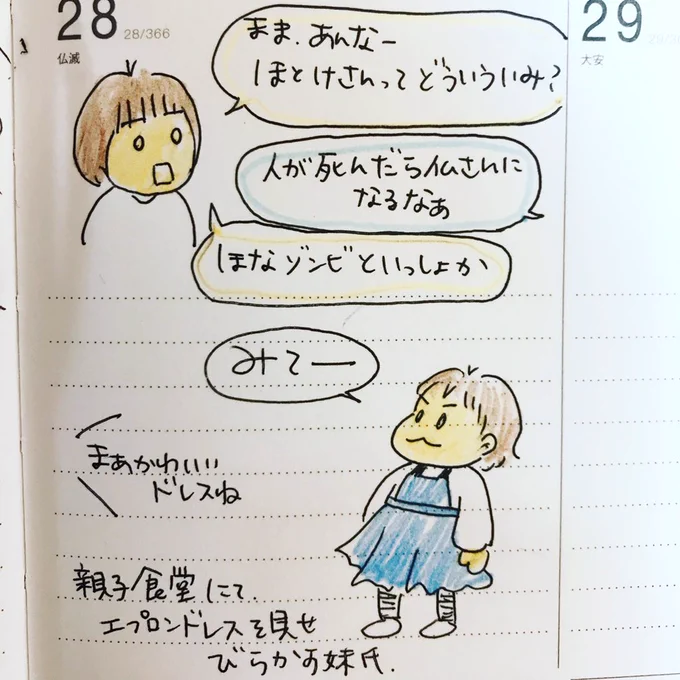 28
28/366
仏滅
29
大安
まま、あんなー
ほとけさんってどういういみ?
人が死んだら仏さんに
なるなあ
ほなゾンビといっしょか
みてー
まあかわいい
ドレスね
親子食堂にて、
エプロンドレスを見せ
びらかす妹氏.